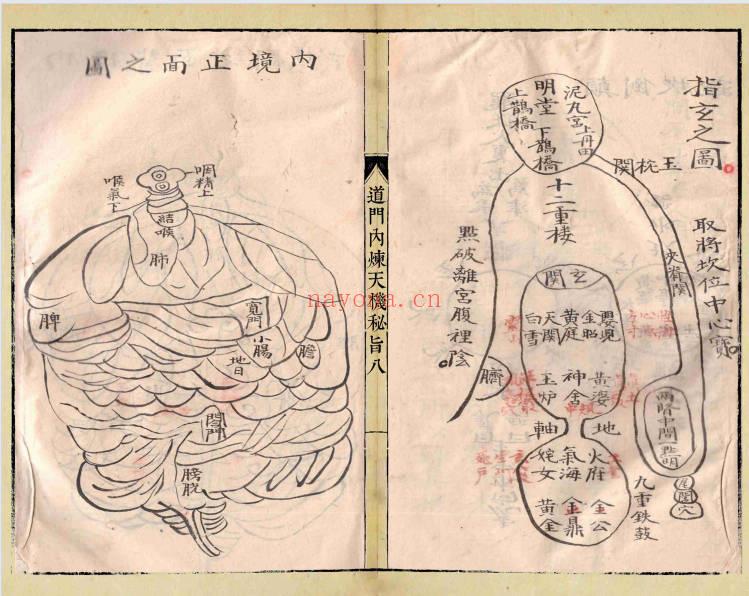 指玄之圖
取將坎位中心寶
泥丸宮上丹田
明堂 下鵲橋
上鵲橋
玉枕関
十二重楼
夾脊関
㸃破離宮腹裡陰
玄関
嬰児
金烱
黄庭
天関
白雪
黄婆
神舍
玉炉
臍
地軸
火府
氣海
姹女
金公
金鼎
黄金
兩腎中間一㸃明
尾閭穴
九重鉄鼓
道門內煉天機秘旨八
內境正面之圖
咽精上
喉氣下
結喉
肺
脾
賁門
小腸
胆
闌門
膀胱
nayona.cn